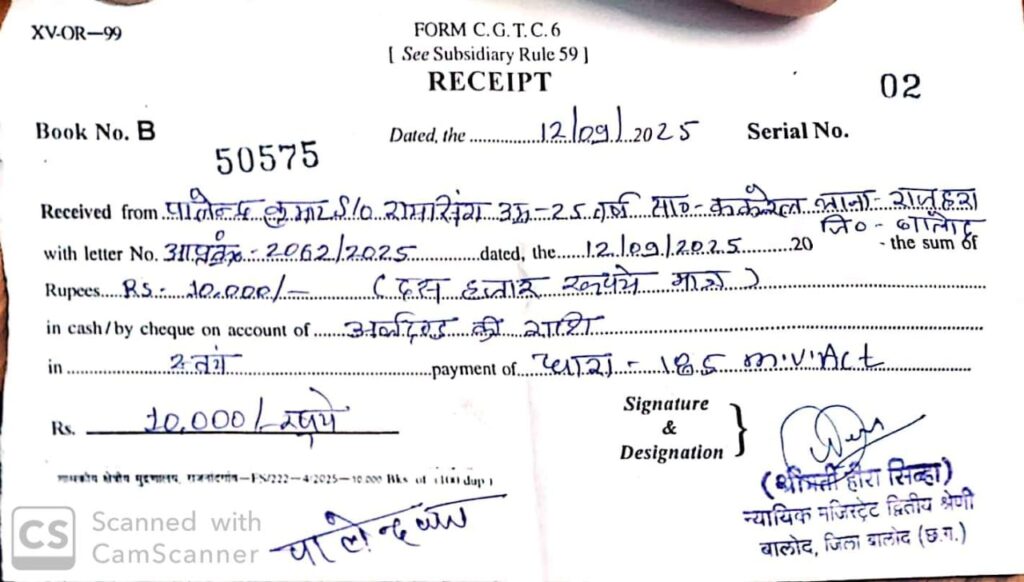 XV-OR—99
FORM C.G.T.C.6
[ See Subsidiary Rule 59 ]
RECEIPT
02
Book No. B
Dated, the 12/09/2025
Serial No.
50575
Received from पालेन्द्र कुमार S/O रामसिंग उम्र-25 वर्ष सा०- थाना- राजहरा
जि०- बालोद
with letter No. 2062/2025 dated, the 12/09/2025 20 - the sum of
Rupees RS- 10,000/- (दस हजार रूपये मात्र)
in cash/by cheque on account of अर्थदण्ड की राशि
in स्वतंय payment of धारा - 185 m.v.Act
Rs. 10,000/- रुपये
Signature
&
Designation
शासकीय क्षेत्रीय मुद्रणालय, राजनांदगांव—FS/222—4/2025—10,000 Bks of (100 dup)
(श्रीमती हीरा सिन्हा)
न्यायिक मजिस्ट्रेट द्वितीय श्रेणी
बालोद, जिला बालोद (छ.ग.)
CS Scanned with
CamScanner